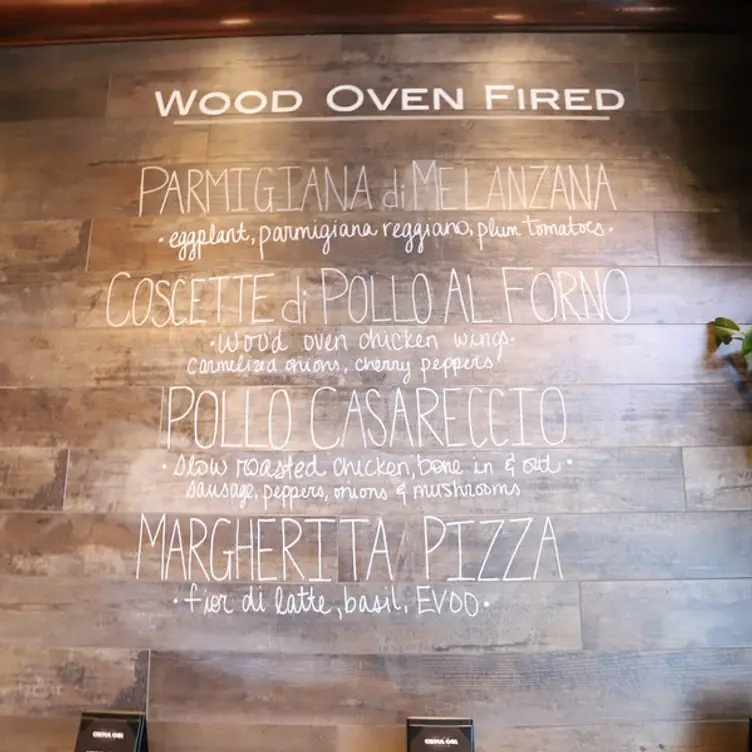 WOOD OVEN FIRED
PARMIGIANA di MELANZANA
• eggplant, parmigiana reggiano, plum tomatoes •
COSCETTE di POLLO AL FORNO
• wood oven chicken wings •
carmelized onions, cherry peppers
POLLO CASARECCIO
• slow roasted chicken, bone in & out •
sausage, peppers, onions & mushrooms
MARGHERITA PIZZA
• fior di latte, basil, EVOO •